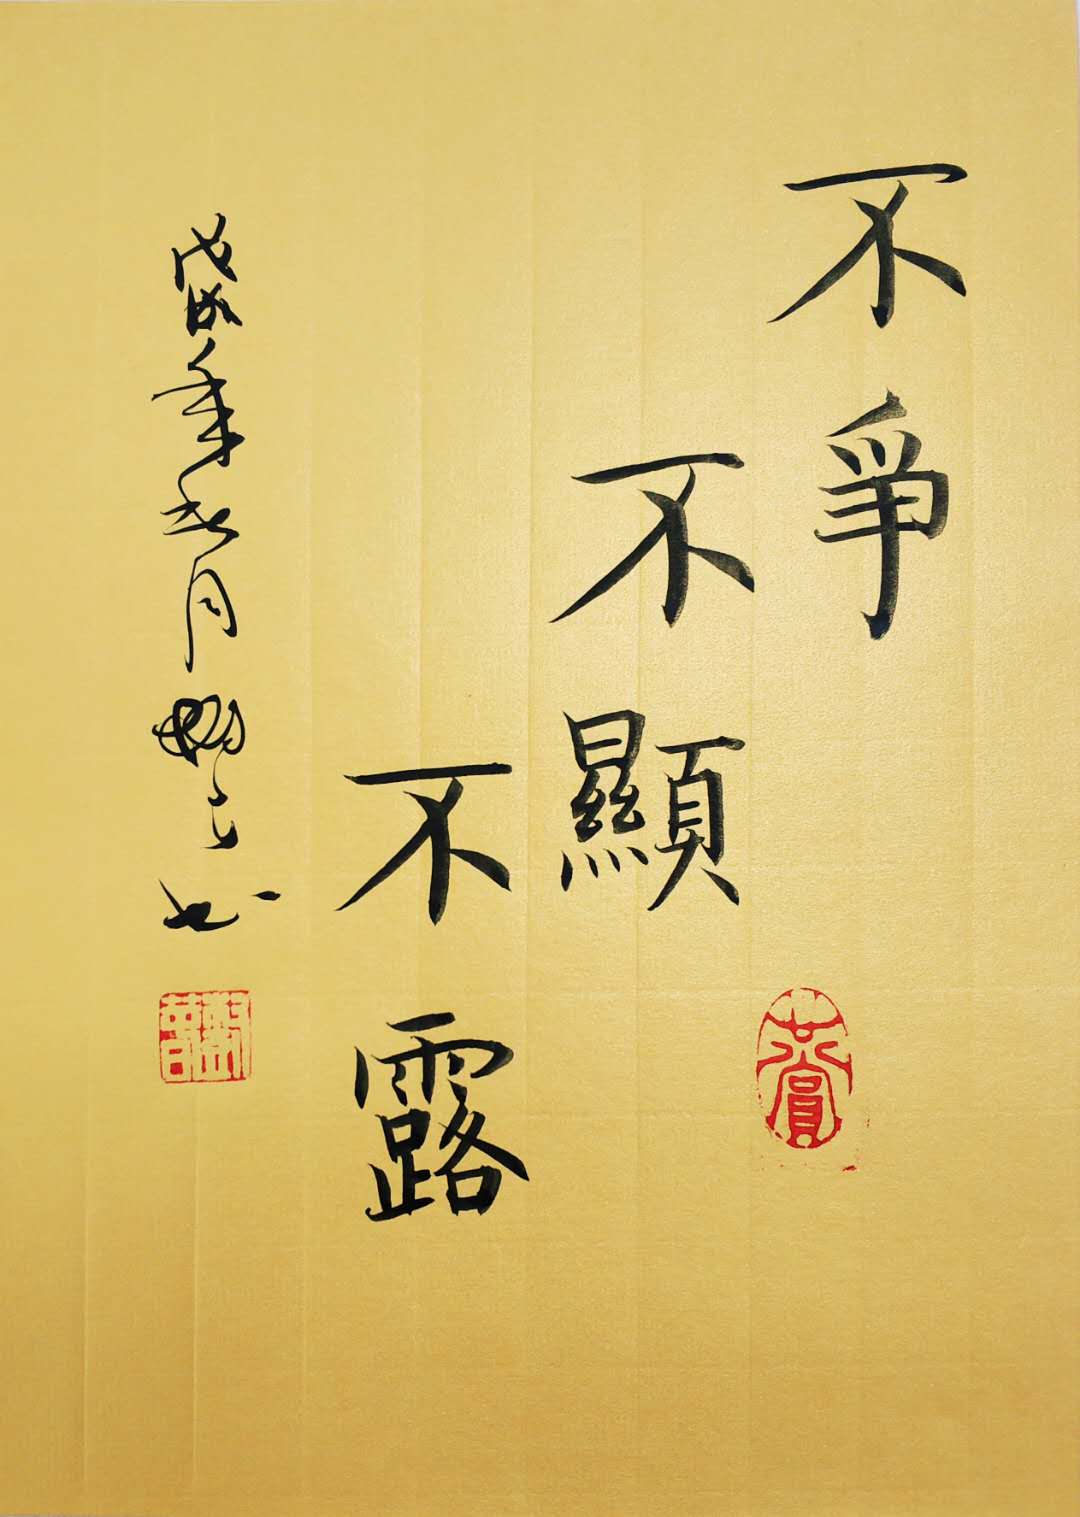 不爭
不顯
不露
戊戌年
月
書